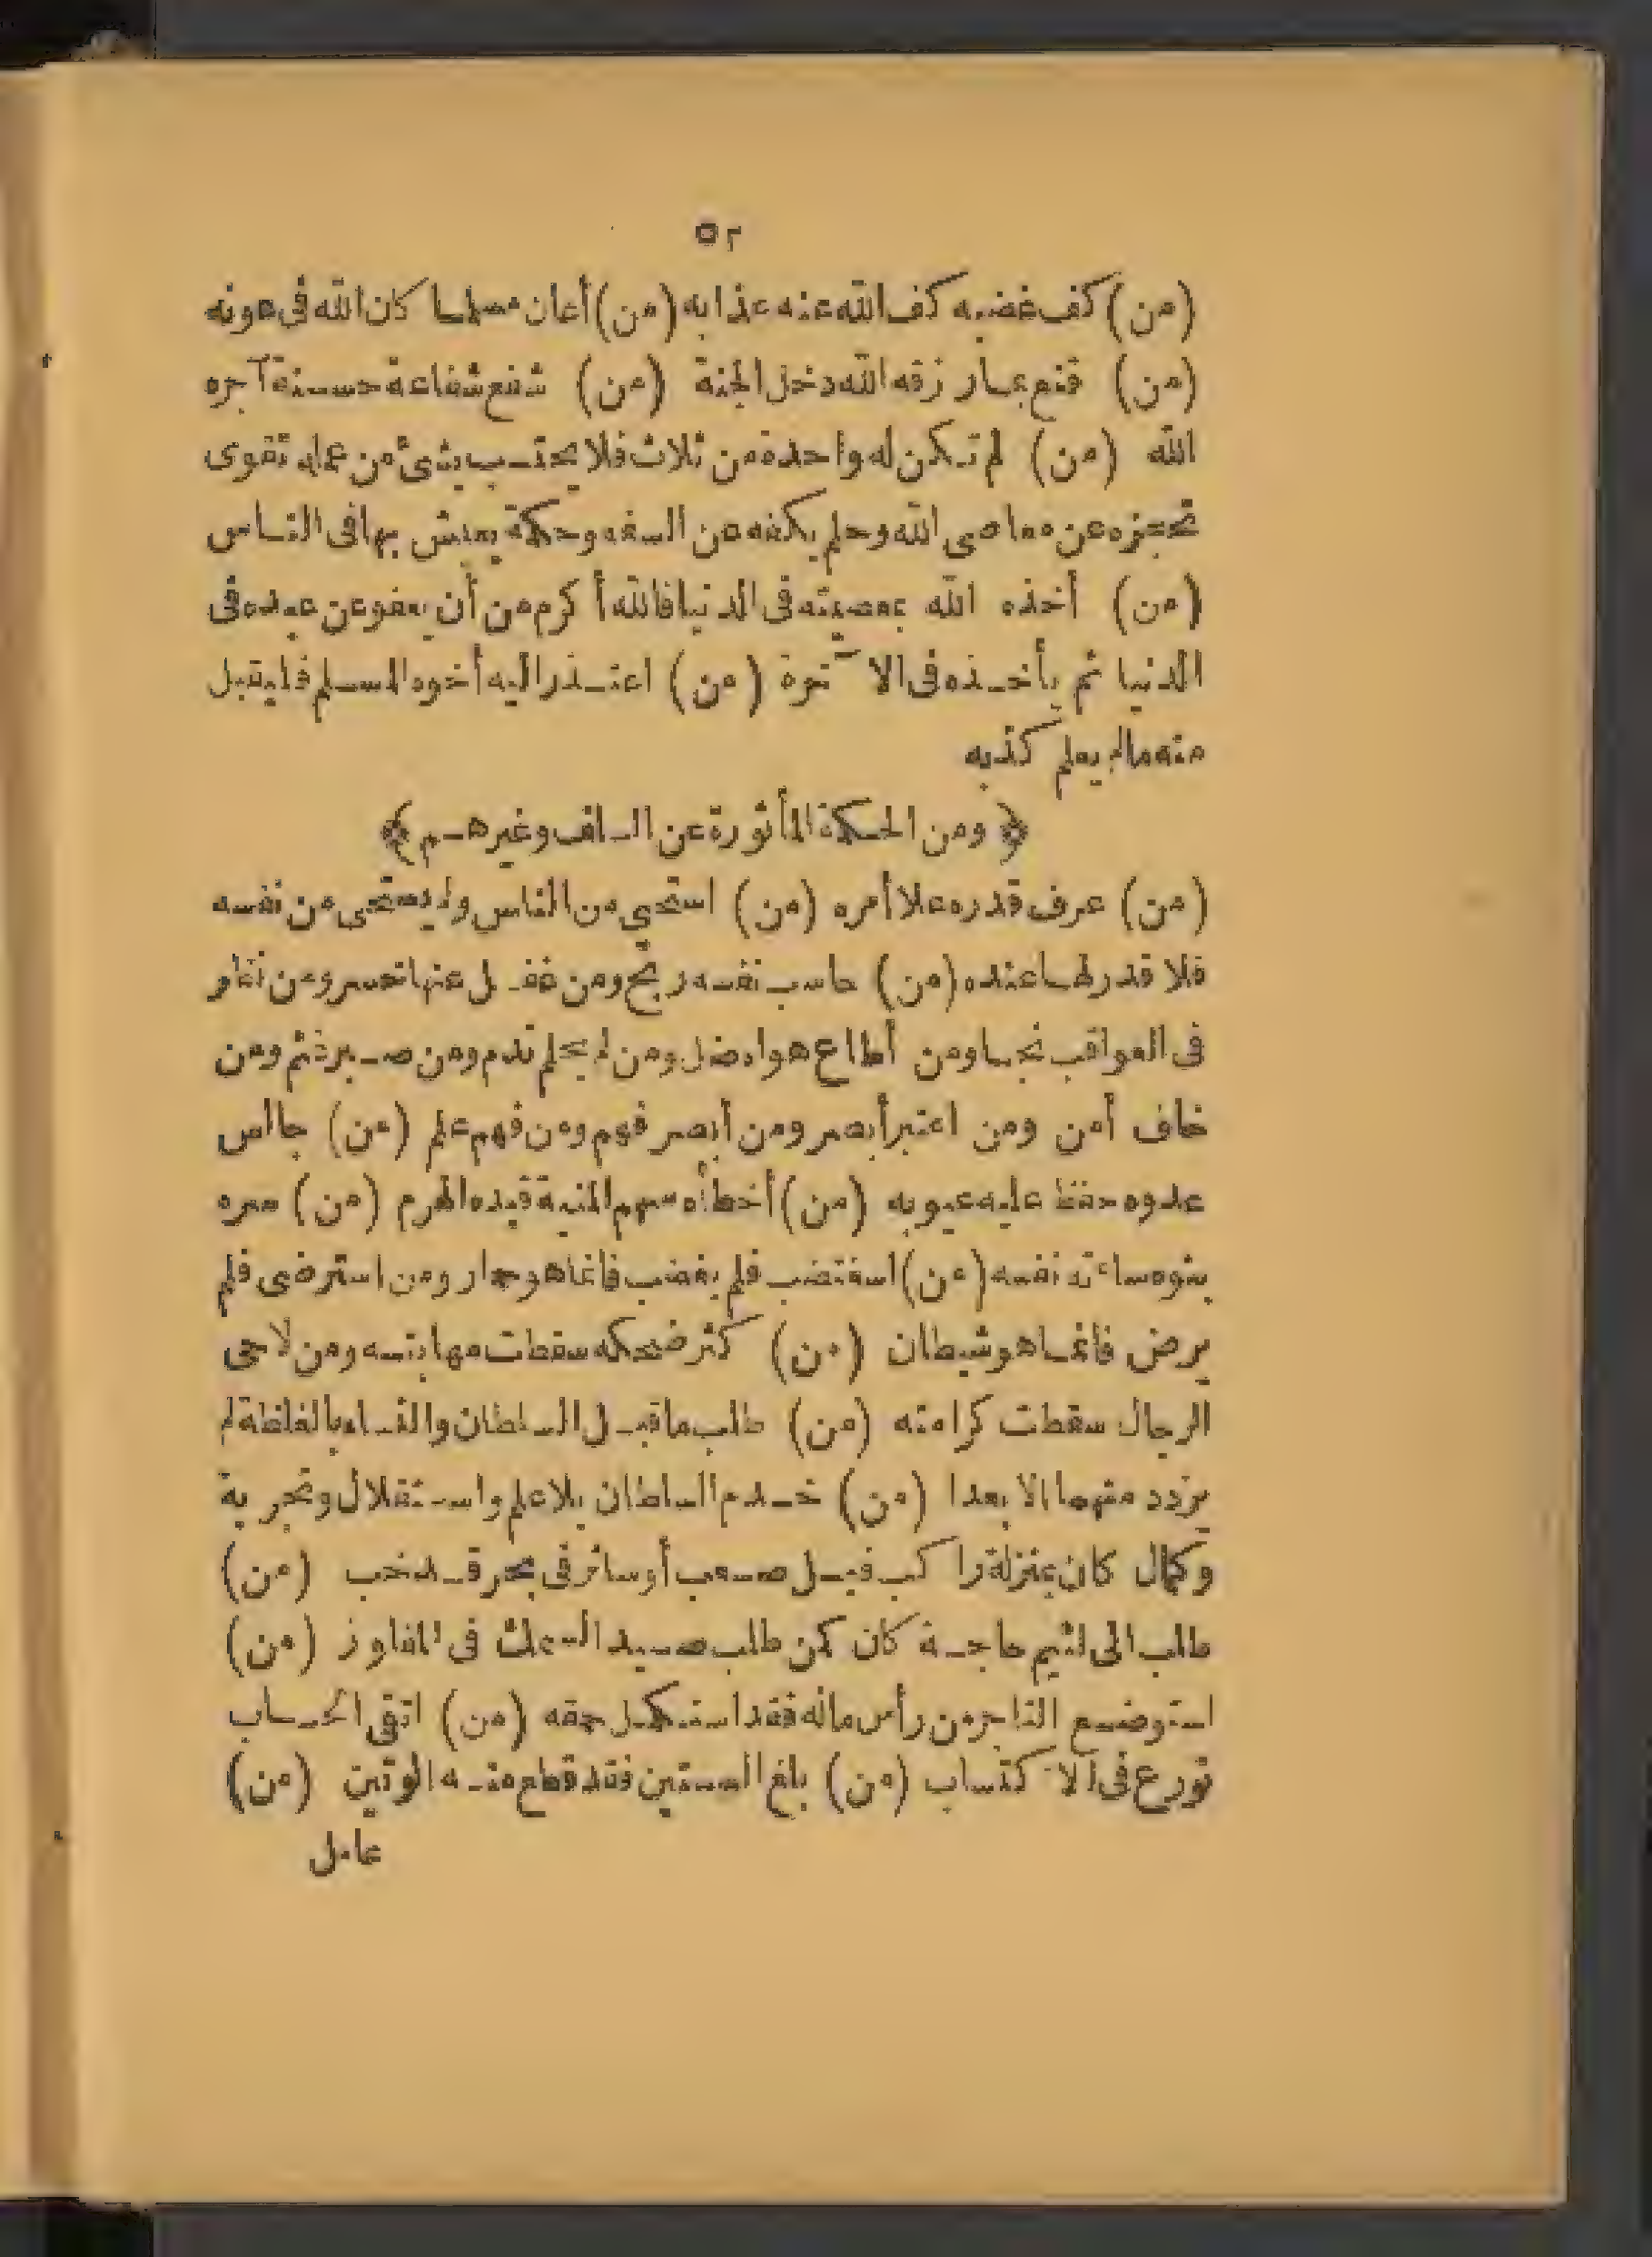 ٥٢
(من) كف غضبه كف الله عنه عذابه (من) أعان مسلما كان الله فى عونه
(من) قنع بما رزقه الله دخل الجنة (من) شفع شفاعة حسنة آجره
الله (من) لم تكن له واحدة من ثلاث فلا يحتسب بشئ من عمله تقوى
تحجزه عن معاصى الله وحلم يكفه عن السفه وحكمة يعيش بها فى الناس
(من) أخذه الله بمعصيته فى الدنيا فالله أكرم من أن يعفو عن عبده فى
الدنيا ثم يأخذه فى الآخرة (من) اعتذر اليه أخوه المسلم فليقبل
منه مالم يعلم كذبه
﴿ ومن الحكمة المأثورة عن السلف وغيرهم ﴾
(من) عرف قدره علا أمره (من) استحى من الناس ولم يستحى من نفسه
فلا قدر لها عنده (من) حاسب نفسه ربح ومن غفل عنها خسر ومن نظر
فى العواقب نجا ومن أطاع هواه ضل ومن لم يحلم ندم ومن صبر غنم ومن
خاف أمن ومن اعتبر أبصر ومن أبصر فهم ومن فهم علم (من) جالس
عدوه حفظ عليه عيوبه (من) أخطأه سهم المنية قيده الهرم (من) سره
بنوه ساءته نفسه (من) استغضب فلم يغضب فانما هو حمار ومن استرضى فلم
يرض فانما هو شيطان (من) كثر ضحكه سقطت مهابته ومن لاحى
الرجال سقطت كرامته (من) طلب ما قبل السلطان والنساء بالغلظة لم
يزدد منهما الا بعدا (من) خدم السلطان بلا علم واستقلال وتجربة
وكمال كان بمنزلة راكب فيل صعب أو سائر فى بحر قد خب (من)
طلب الى لئيم حاجة كان كمن طلب صيد السمك فى المفاوز (من)
استوضع التاجر من رأس ماله فقد استكمل حقه (من) اتقى الحساب
تورع فى الاكتساب (من) بلغ الستين فقد قطع منه الوتين (من)
عامل